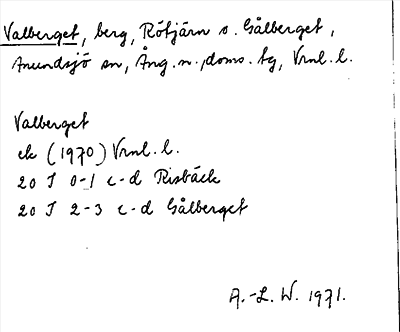 Valberget, berg, Rötjärn o. Gålberget,
Anundsjö sn, Ång. n., doms. tg, Vrnl. l.
Valberget
ek (1970) Vrnl. l.
20 J 0-1 c-d Risbäck
20 J 2-3 c-d Gålberget
A.-L. W. 1971.